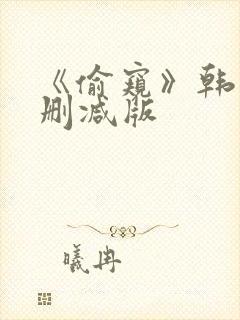 《偷窥》韩
删减版
曦冉